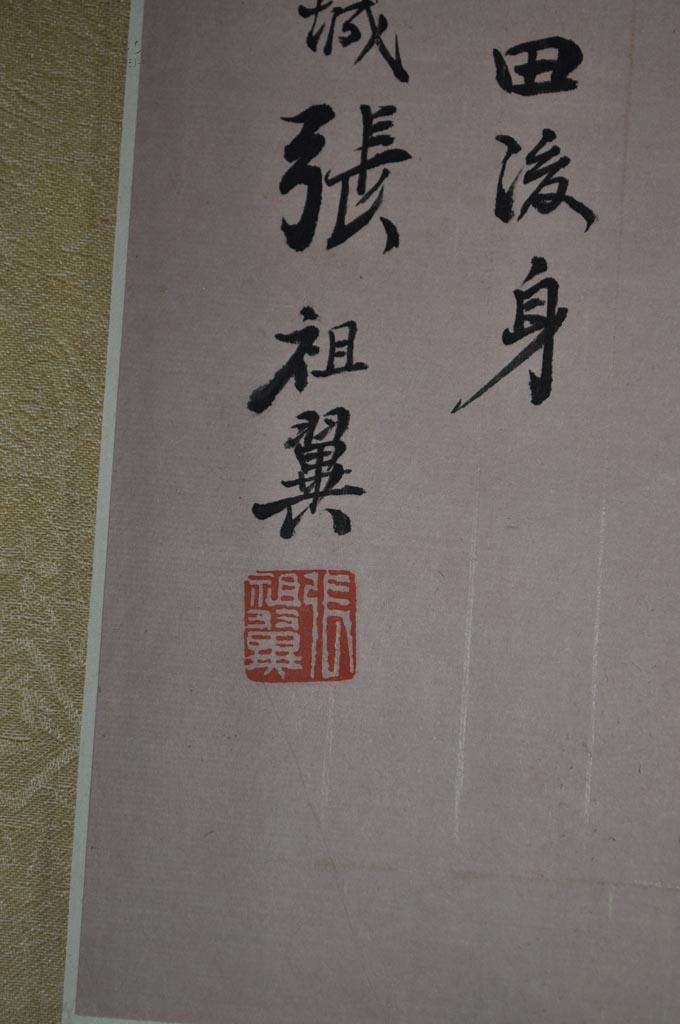 田後身
城張祖翼
張祖翼